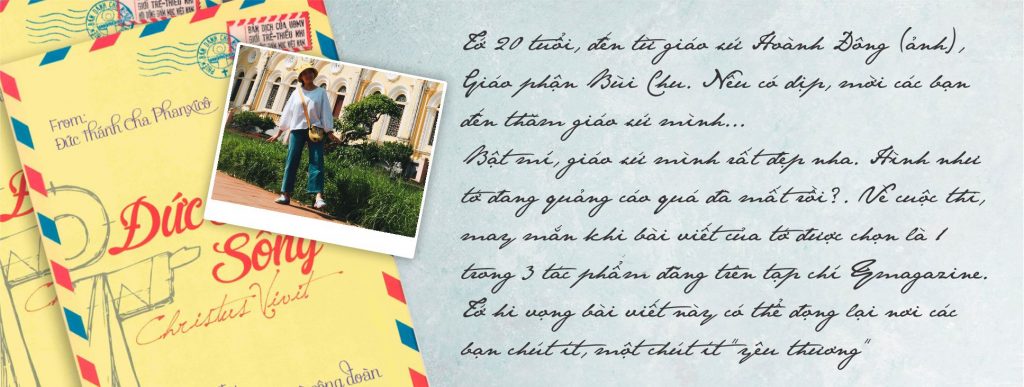 BẢN DỊCH CỦA UBMV
GIỚI TRẺ-THIẾU NHI
HỘI ĐỒNG GIÁM MỤC VIỆT NAM
From:
Đức Thánh Cha Phanxicô
ĐỨC
Sống
Christus Vivit
đoàn
Tớ 20 tuổi, đến từ giáo xứ Hoành Đông (ảnh),
Giáo phận Bùi Chu. Nếu có dịp, mời các bạn
đến thăm giáo xứ mình...
Bật mí, giáo xứ mình rất đẹp nha. Hình như
tớ đang quảng cáo quá đà mất rồi?. Về cuộc thi,
may mắn khi bài viết của tớ được chọn là 1
trong 3 tác phẩm đăng trên tạp chí Gmagazine.
Tớ hi vọng bài viết này có thể đọng lại nơi các
bạn chút ít, một chút ít "yêu thương"